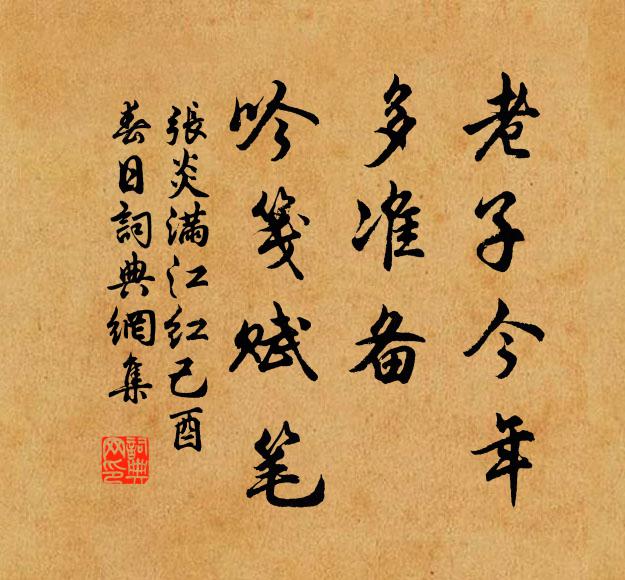 老子今年
多准备
吟笺赋笔
張炎满江红己酉
春日詞典網集
詞典网印